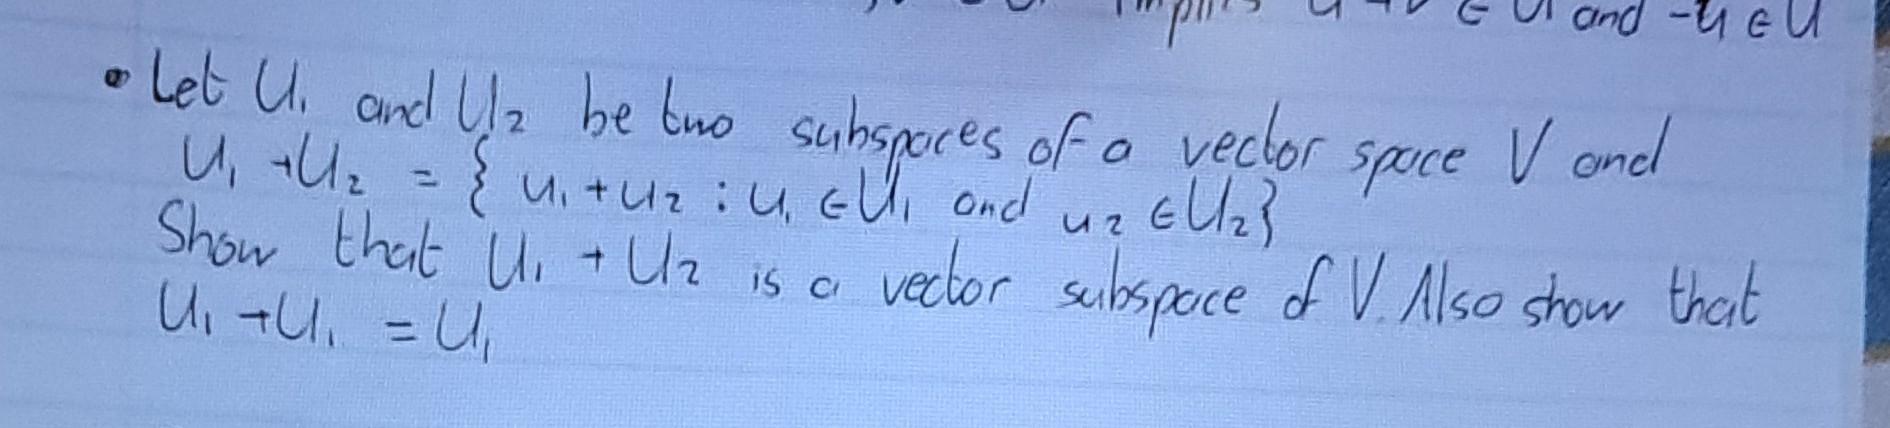 implies u + v ∈ U and -u ∈ U
• Let U₁ and U₂ be two subspaces of a vector space V and
U₁ + U₂ = { u₁ + u₂ : u₁ ∈ U₁ and u₂ ∈ U₂}
Show that U₁ + U₂ is a vector subspace of V. Also show that
U₁ + U₁ = U₁